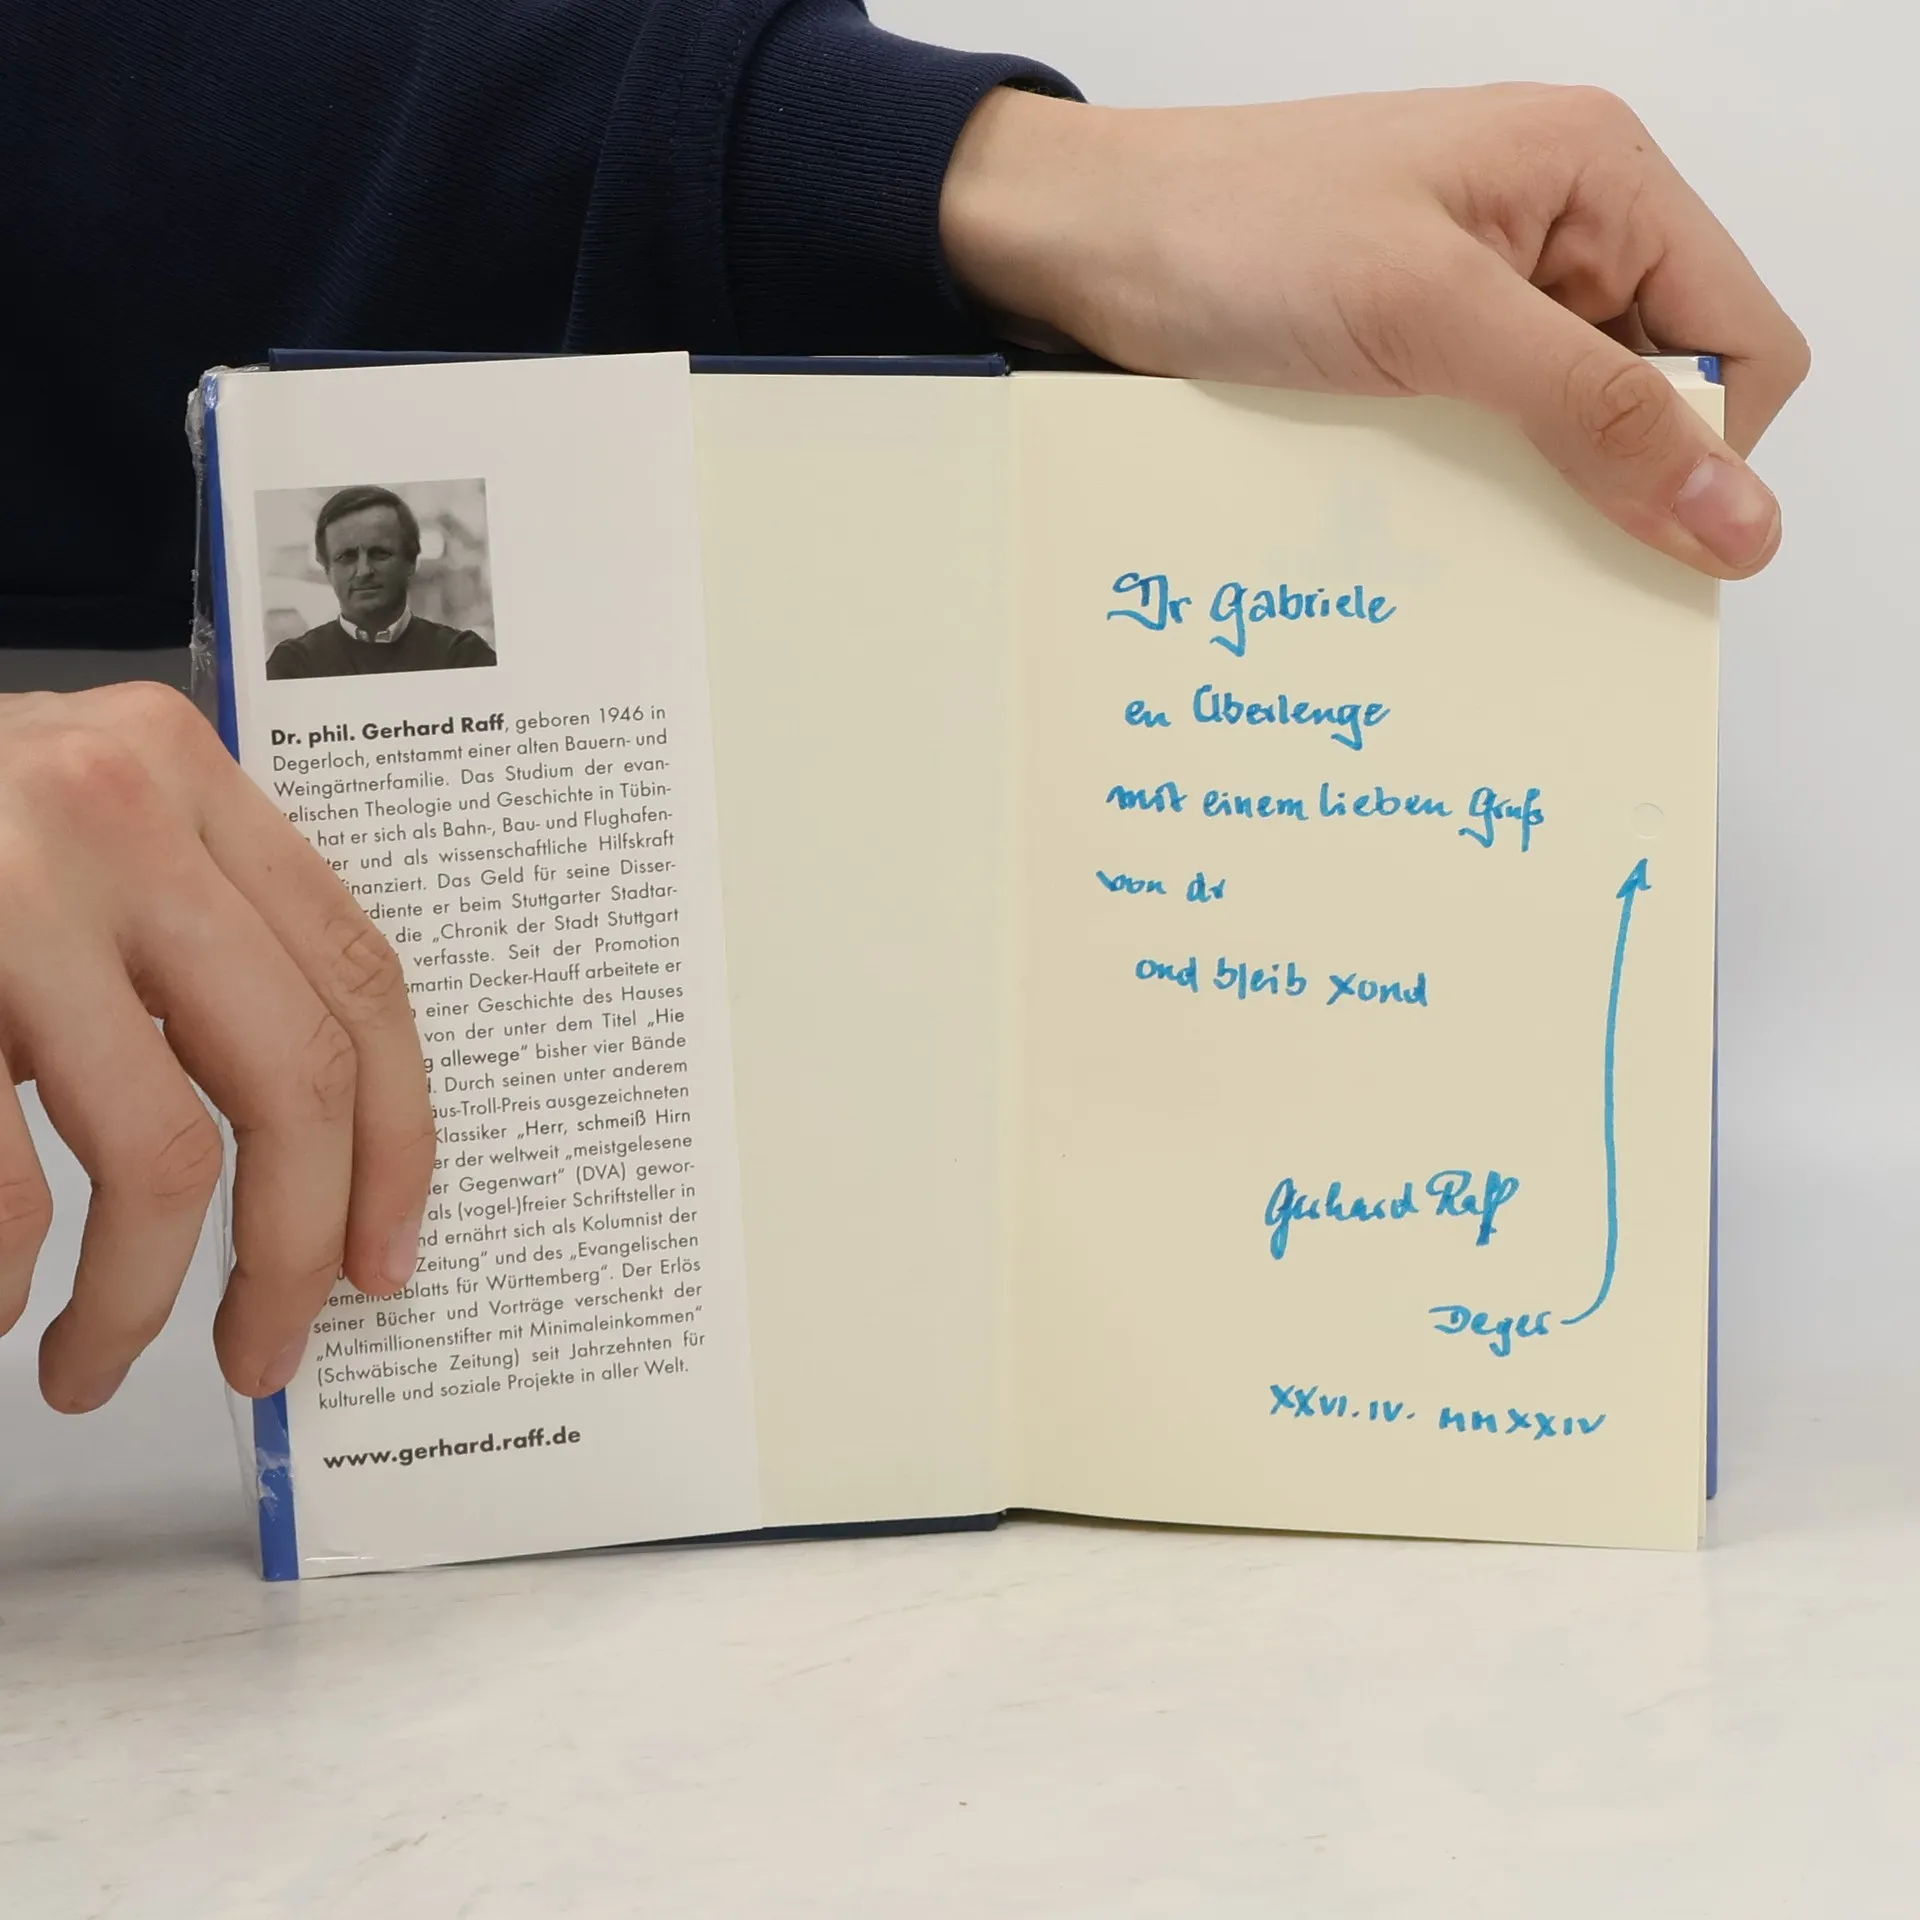 Dr. phil. Gerhard Raff, geboren 1946 in
Degerloch, entstammt einer alten Bauern- und
Weingärtnerfamilie. Das Studium der evan-
elischen Theologie und Geschichte in Tübin-
hat er sich als Bahn-, Bau- und Flughafen-
ter und als wissenschaftliche Hilfskraft
inanziert. Das Geld für seine Disser-
rdiente er beim Stuttgarter Stadtar-
die „Chronik der Stadt Stuttgart
verfasste. Seit der Promotion
smartin Decker-Hauff arbeitete er
einer Geschichte des Hauses
von der unter dem Titel „Hie
g allewege“ bisher vier Bände
. Durch seinen unter anderem
äus-Troll-Preis ausgezeichneten
Klassiker „Herr, schmeiß Hirn
er der weltweit „meistgelesene
er Gegenwart“ (DVA) gewor-
als (vogel-)freier Schriftsteller in
nd ernährt sich als Kolumnist der
Zeitung“ und des „Evangelischen
emeindeblatts für Württemberg“. Der Erlös
seiner Bücher und Vorträge verschenkt der
„Multimillionenstifter mit Minimaleinkommen“
(Schwäbische Zeitung) seit Jahrzehnten für
kulturelle und soziale Projekte in aller Welt.
www.gerhard.raff.de
Dr Gabriele
en Überlenge
mit einem lieben Gruß
von dr
ond bleib xond
Gerhard Raff
Deger
XXVI. IV. MMXXIV